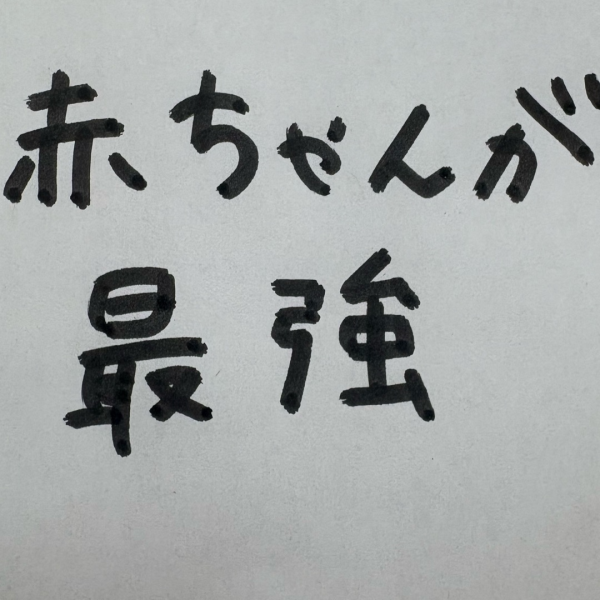 赤ちゃんが
最強